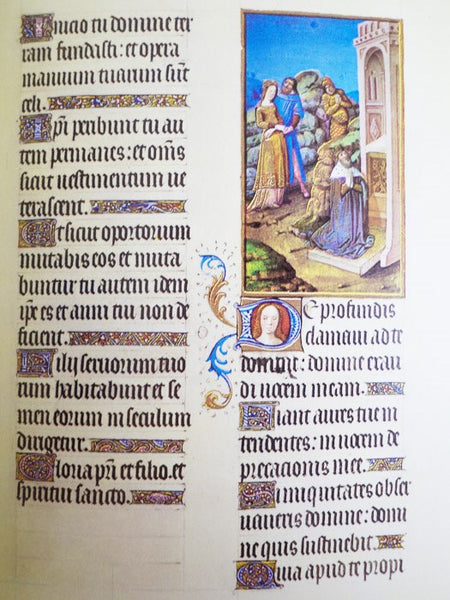 Inicio tu domine ter
ram fundasti: et opera
manuum tuarum sūt
celi.
Ipi peribunt tu au
tem permanes: et om̄s
sicut vestimentum ve
terascent.
Et sicut oportorium
mutabis eos et muta
buntur tu autem idem
ip̄e es et anni tui non de
ficient.
Filij servorum tuo
rum habitabunt et se
men eorum in seculum
dirigetur.
Gloria pr̄i et filio. et
spiritui sancto.
De profundis
clamavi ad te
domine: domine exau
di vocem meam.
Fiant aures tue in
tendentes: in vocem de
precationis mee.
Si iniquitates obser
vaveris domine: domi
ne quis sustinebit.
Quia apud te propi